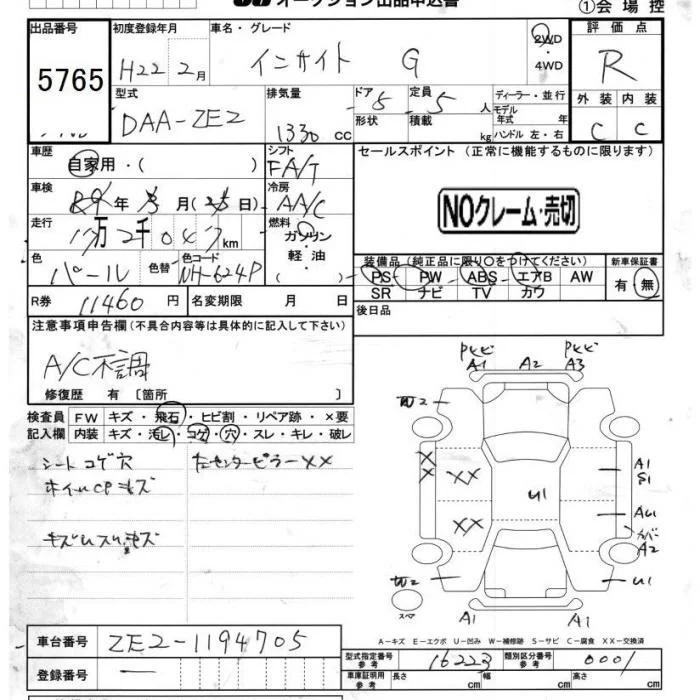 オークション出品申込書
①会場控
出品番号 初度登録年月 車名・グレード 評価点
5765 H22 2月 インサイト G 2WD ・4WD R
型式 排気量 ドア 定員 ディーラー・並行 外装 内装
DAA-ZE2 1330 CC 5 5 人 モデル年式 年 C C
形状 積載 kg ハンドル 左・右
車歴 シフト セールスポイント (正常に機能するものに限ります)
自家用・( ) FA/T
車検 冷房 NOクレーム・売切
年 月 日) AA/C
走行 燃料
万 2千 047 km ガソリン・軽油
色 色替 色コード 装備品(純正品に限り○をつけてください) 新車保証書
パール NH-624P PS PW ABS エアB AW 有・無
SR ナビ TV カワ
R券 11460 円 名変期限 月 日 後日品
注意事項申告欄(不具合内容等は具体的に記入して下さい)
A/C不調
修復歴 有 〔箇所 〕
検査員 FW キズ・飛石・ヒビ割・リペア跡・×要
記入欄 内装 キズ・汚レ・コゲ・穴・スレ・キレ・破レ
シートコゲ穴 左センターピラーXX
A1 A2 A3
XX
XX
U1
A1
S1
A2
U1
A1 A1
A-キズ E-エクボ U-凹み W-補修跡 S-サビ C-腐食 XX-交換済
車台番号 ZE2-1194705
型式指定番号 参考 16223 類別区分番号 参考 0001
登録番号 ー
車庫証明用 参考 長さ cm 幅 cm 高さ cm